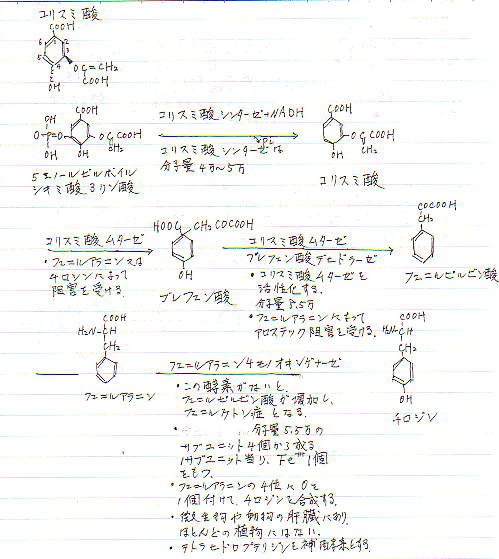 コリスミ酸
COOH
6
1
2
5
3
4
O-C=CH2
COOH
OH
COOH
OH
O-P=O-
OH
O-C-COOH
CH2
OH
5エノールピルボイル
シキミ酸3リン酸
コリスミ酸シンターゼ+NADH
Pi
コリスミ酸シンターゼは
分子量4万~5万
COOH
O-C-COOH
CH2
OH
コリスミ酸
コリスミ酸ムターゼ
・フェニルアラニン又は
チロシンによって
阻害を受ける
HOOC
CH2COCOOH
OH
プレフェン酸
コリスミ酸ムターゼ
プレフェン酸デヒドラターゼ
・コリスミ酸ムターゼを
活性化する.
分子量5.5万
・フェニルアラニンによって
アロステック阻害を受ける.
COCOOH
CH2
フェニルピルビン酸
COOH
H2N-CH
CH2
フェニルアラニン
フェニルアラニン4モノオキシゲナーゼ
・この酵素がないと、
フェニルピルビン酸が増加し、
フェニルケトン症となる.
・分子量5.5万の
サブユニット4個から成る
1サブユニット当り、Fe 1個
をもつ.
・フェニルアラニンの4位にOを
1個付けて、チロシンを合成する.
・微生物や動物の肝臓にあり、
ほとんどの植物にはない.
・テトラヒドロプテリジンを補因子とする
COOH
H2N-CH
CH2
OH
チロシン